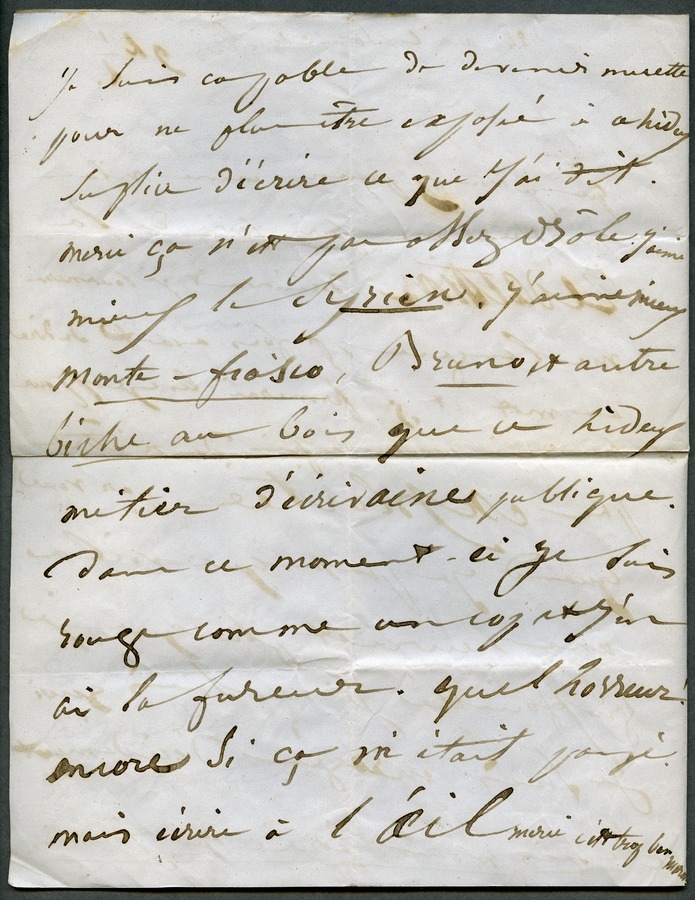 Je suis capable de devenir muette
pour ne plus être exposé à ce hideux
suplice d'écrire ce que j'ai dit.
merci ça n'est pas assez drôle. j'aime
mieux le Syrien. j'aime mieux
monte-fiasco, Bruno, et autre
biche au bois que ce hideux
métier d'écrivaine publique.
Dans ce moment-ci je suis
rouge comme un coq et j'en
ai la fureur. quel horreur!
encore si ça m'était payé.
mais écrire à l'œil merci c'est trop bon